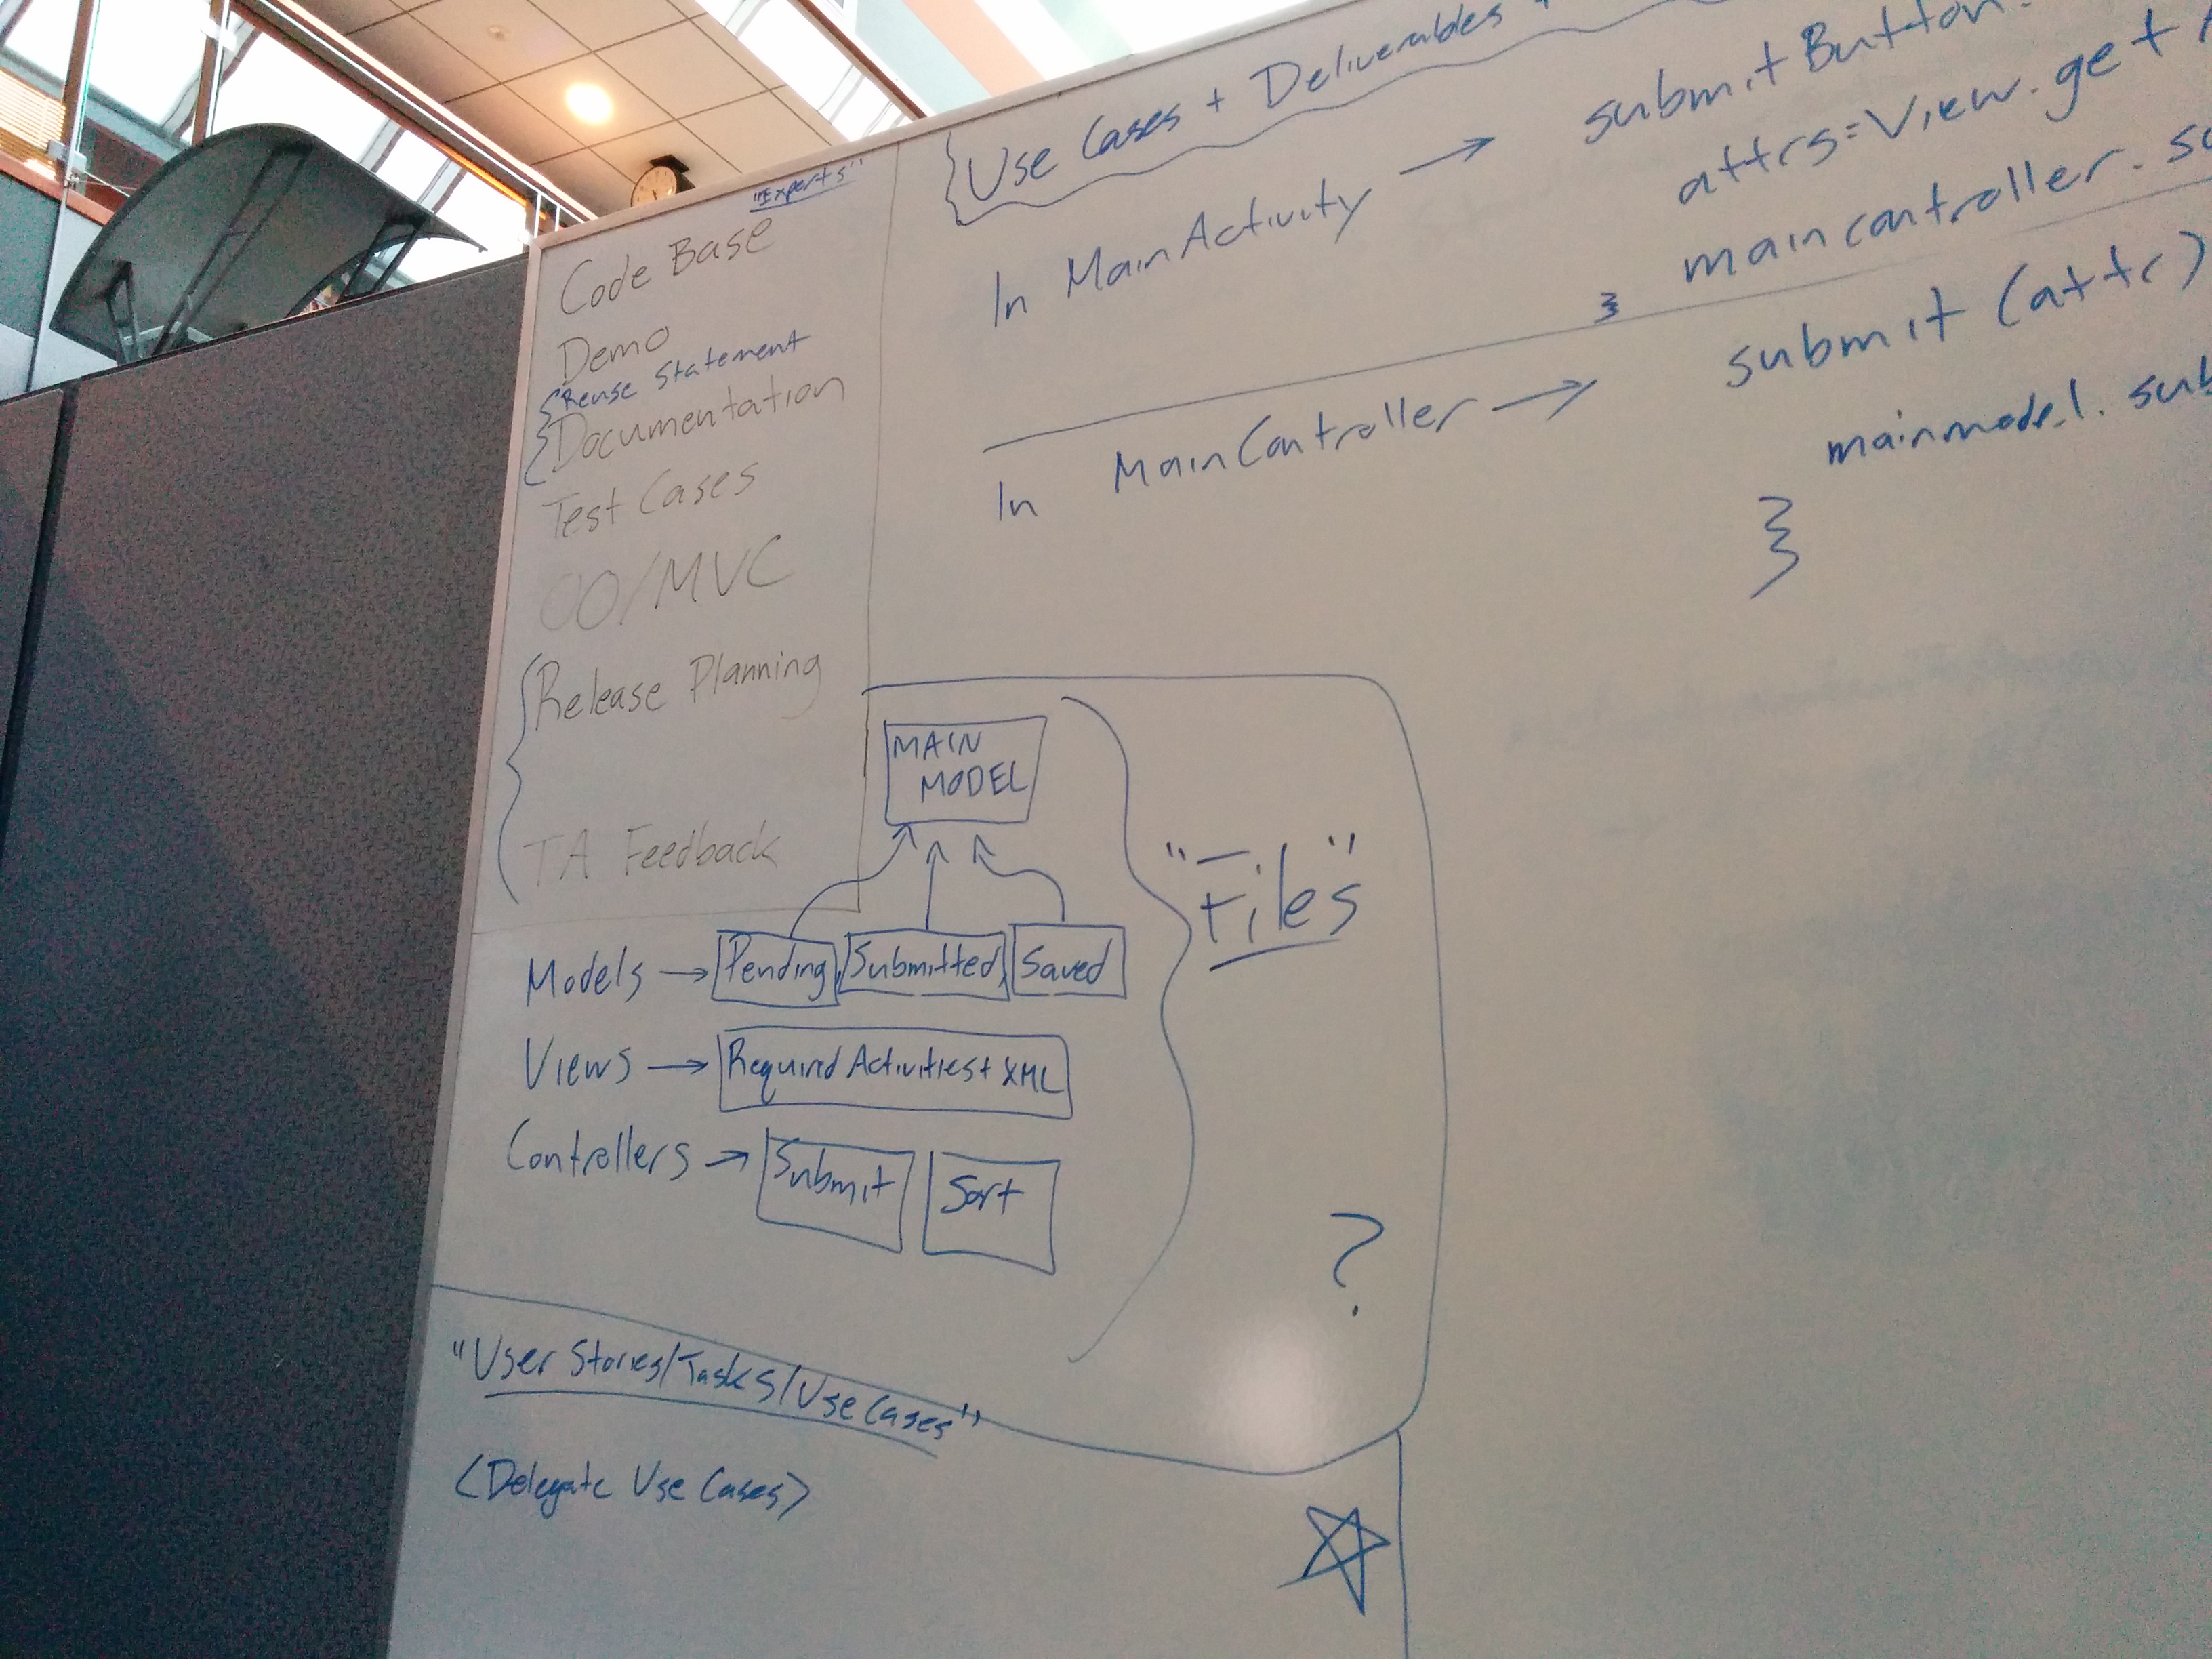 "Experts"
Code Base
Demo
Reuse Statement
Documentation
Test Cases
OO/MVC
Release Planning
TA Feedback
Use Cases + Deliverables
In MainActivity → submitButton.
attrs=View.get
maincontroller.
}
In MainController → submit (attr)
mainmodel. sub
}
MAIN
MODEL
"Files"
Models → Pending, Submitted, Saved
Views → Required Activities + XML
Controllers → Submit Sort
?
"User Stories/Tasks/Use Cases"
(Delegate Use Cases)